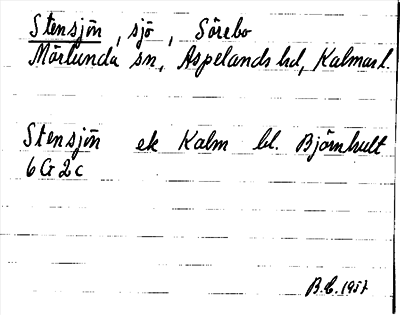 Stensjön, sjö, Sörebo
Mörlunda sn, Aspelands hd, Kalmar l.
Stensjön ek Kalm bl. Björnhult
6G2c
1957